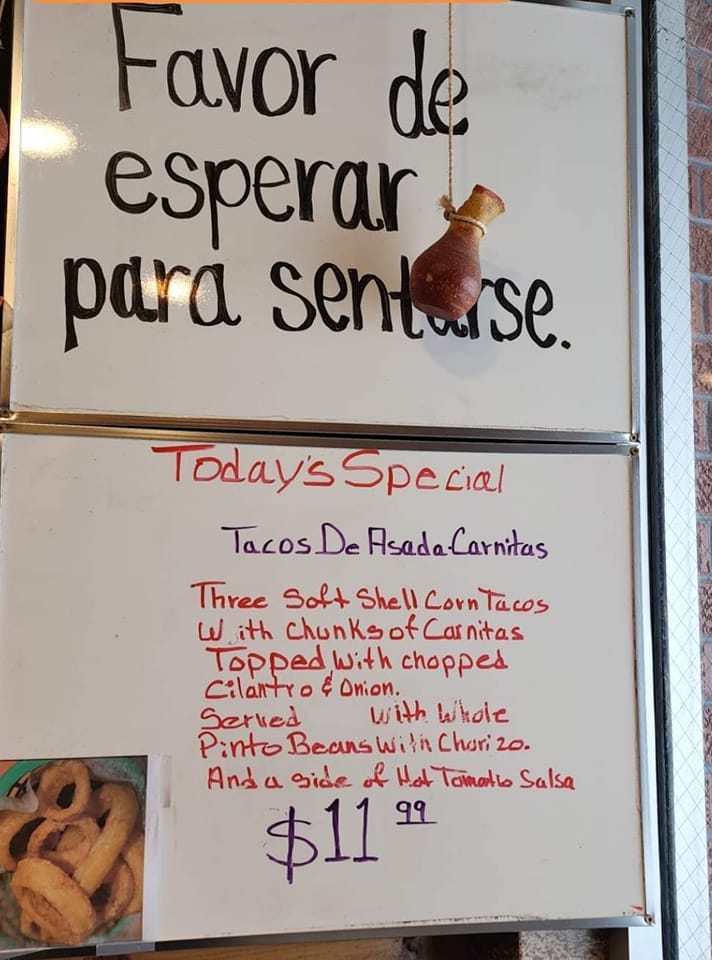 Favor de
esperar
para sentarse.
Today's Special
Tacos De Asada-Carnitas
Three Soft Shell Corn Tacos
With Chunks of Carnitas
Topped With chopped
Cilantro & Onion.
Served With Whole
Pinto Beans With Chorizo.
And a side of Hot Tomatto Salsa
$11 99